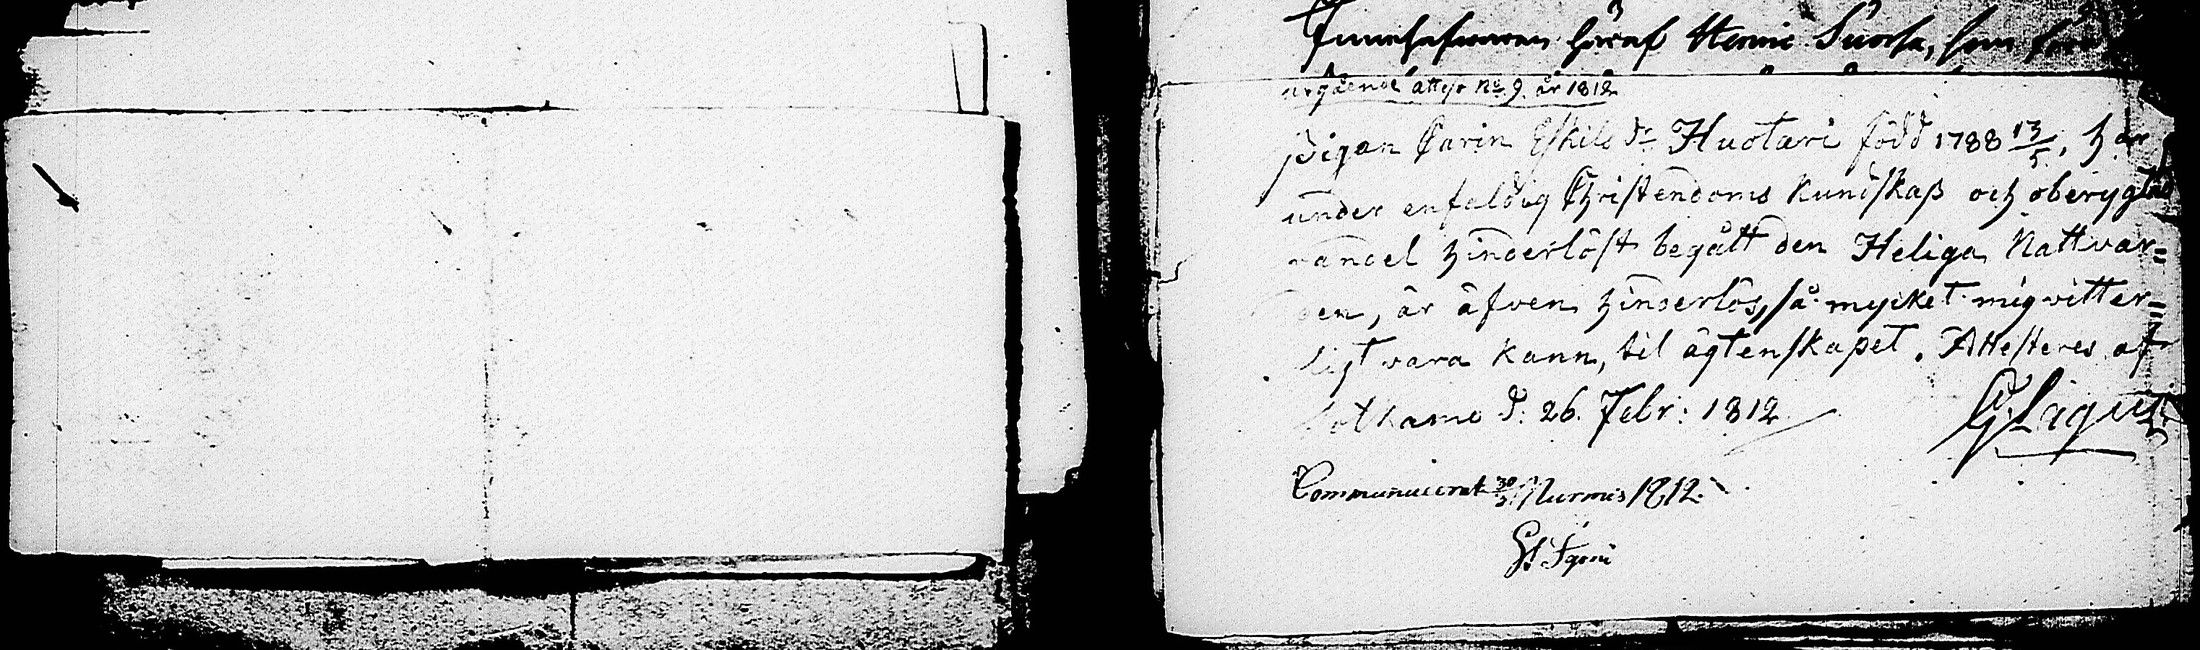 Innehafwaren häraf Henric Suorsa, som
utgående attest No 9. år 1812
Pigan Carin Eskils dr Huotari född 1788 13/5, har
under enfaldig Christendoms Kundskap och oberygtad
vandel hinderlöst begått den Heliga Nattvar=
den, är äfven hinderlös, så mycket mig vitter=
ligt vara kann, til ägtenskapet. Attesteres af
Sotkamo d. 26. Febr: 1812
Communicerat 30/3 Nurmis 1812.